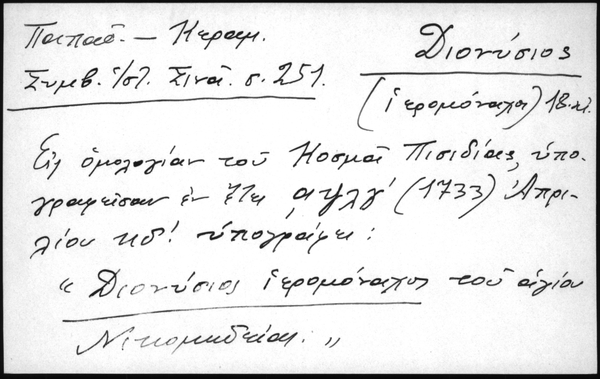 Παπαδ. – Κεραμ.
Συμβ. ἱστ. Σινᾶ. σ. 251.
Διονύσιος
(ἱερομόναχος) 18. αἰ.
Εἰς ὁμολογίαν τοῦ Κοσμᾶ Πισιδίας, ὑπο-
γραφεῖσαν ἐν ἔτει ͵αψλγ΄ (1733) Ἀπρι-
λίου κδ΄. ὑπογράφει:
« Διονύσιος ἱερομόναχος τοῦ ἁγίου
Νικομηδείας. »